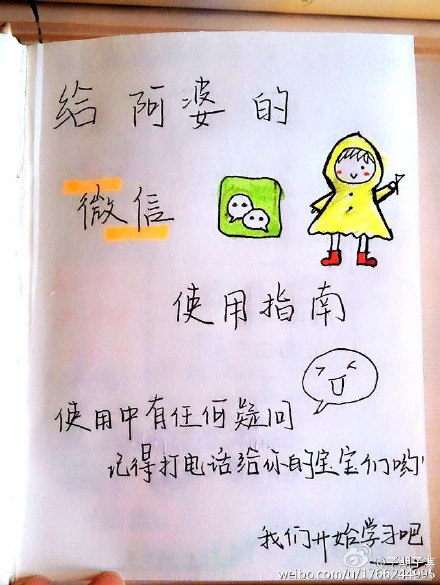 给阿婆的
微信
使用指南
使用中有任何疑问
记得打电话给你的宝宝们哟!
我们开始学习吧
weibo.com/u/1766244995